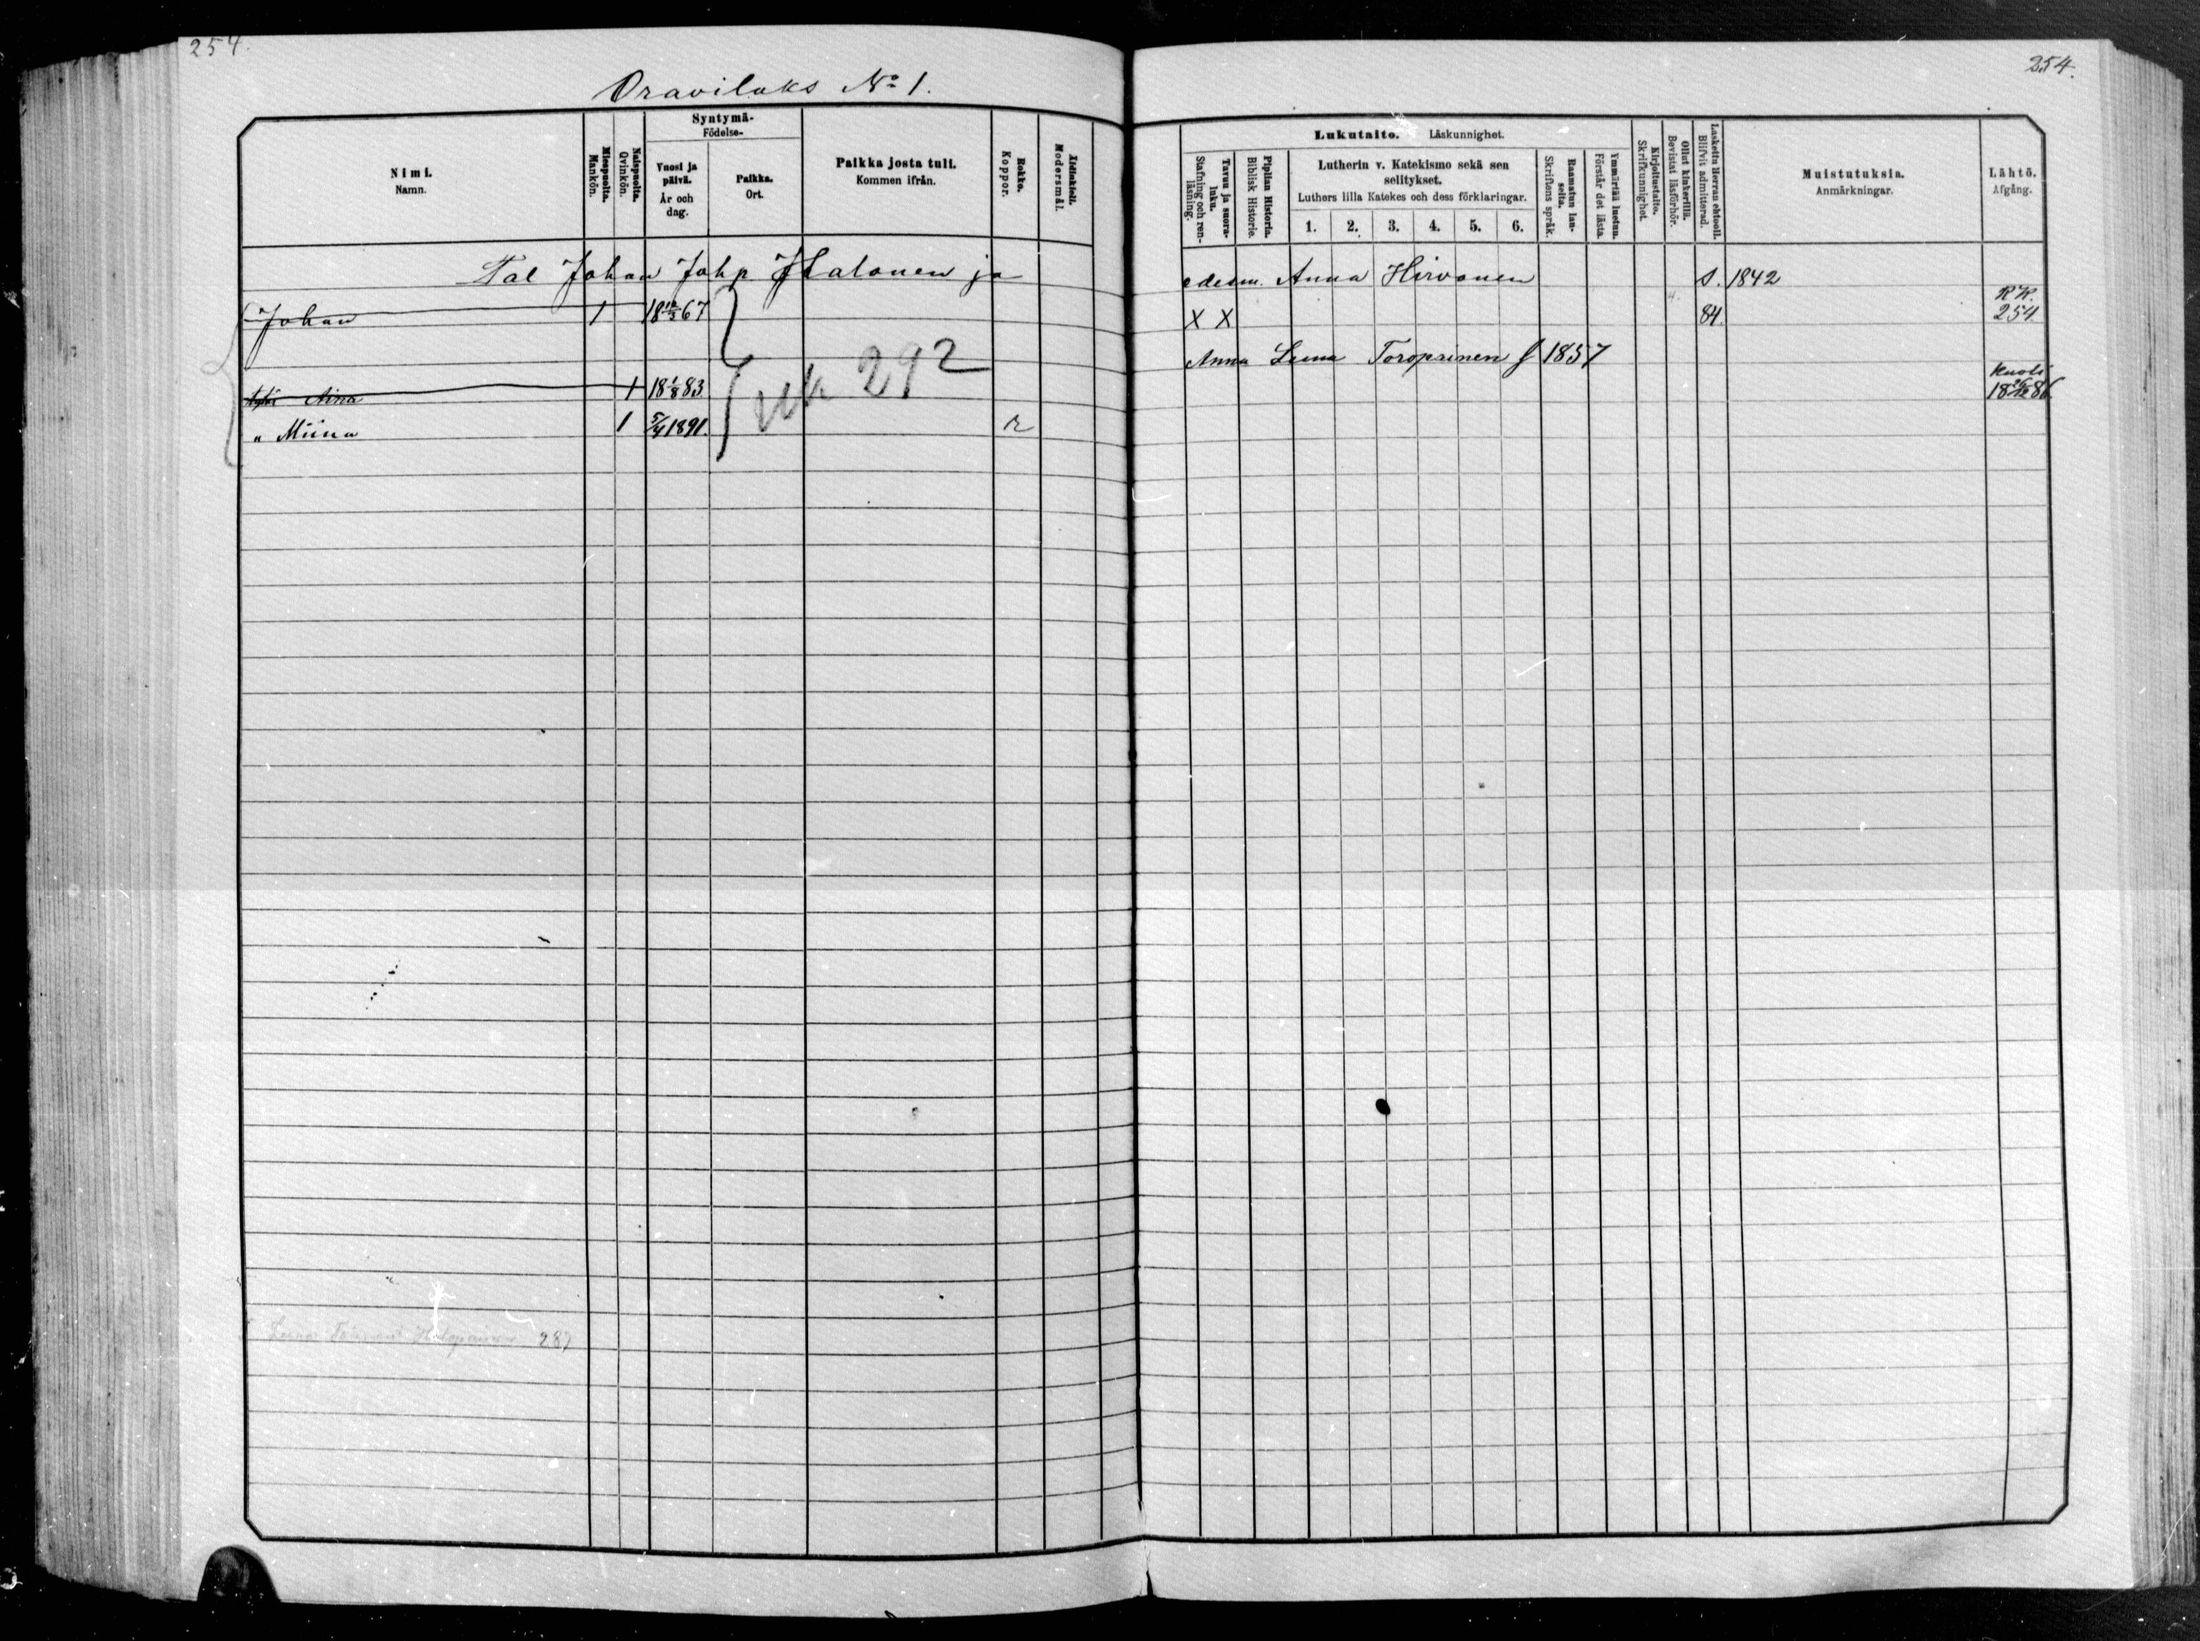 254.
254.
Oravilaks No 1.
Nimi.
Namn.
Miespuolta.
Mankön.
Naispuolta.
Qvinkön.
Syntymä-
Födelse-
Vuosi ja päivä.
År och dag.
Paikka.
Ort.
Paikka josta tuli.
Kommen ifrån.
Rokko.
Koppor.
Äidinkieli.
Modersmål.
Lukutaito. Läskunnighet.
Tavuu ja suora-luku.
Stafning och ren-läsning.
Piplian Historia.
Biblisk Historie.
Lutherin v. Katekismo sekä sen selitykset.
Luthers lilla Katekes och dess förklaringar.
1. 2. 3. 4. 5. 6.
Raamatun lau-seita.
Skriftens språk.
Ymmärtää luetun.
Förstår det lästa.
Kirjoitustaito.
Skrifkunnighet.
Ollut kinkerillä.
Bevistat läsförhör.
Laskettu Herran ehtooll.
Blifvit admitterad.
Muistutuksia.
Anmärkningar.
Lähtö.
Afgång.
Tal Johan Johp Halonen ja edesm. Anna Hirvonen s. 1842
Johan 1 18 12/3 67 X X 84. RK. 254.
Anna Leena Toroprinen s 1857
tytär Aina 1 18 1/8 83. rk 292 kuoli 18 26/12 86.
" Miina 1 5/4 1891. r
Leena 287